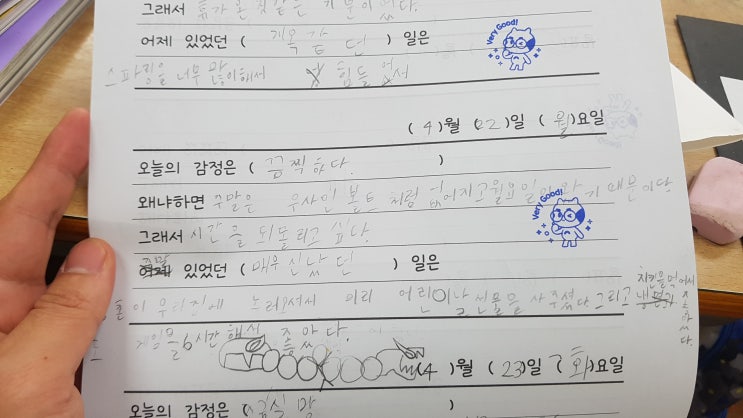 그래서 휴가 온 것같은 기분이었다.
어제 있었던 ( 기억 남 던 ) 일은
Very Good!
스파링을 너무 많이해서 힘들 었서
( 4 )월 (22)일 ( 월 )요일
오늘의 감정은 ( 끔찍하다. )
왜냐하면 주말은 우사인 볼트 처럼 없어지고 월요일이 와 기 때문이다
Very Good!
그래서 시간을 되돌리고 싶다.
주말 있었던 ( 매우 신났 던 ) 일은
이 우리집에 놀러오셔서 미리 어린이날 선물을 사주셨다 그리고
치킨을 먹어서 좋았다.
게임을 6시간 해서 좋았다.
(4 )월 (23)일 ( 화 )요일
오늘의 감정은 (